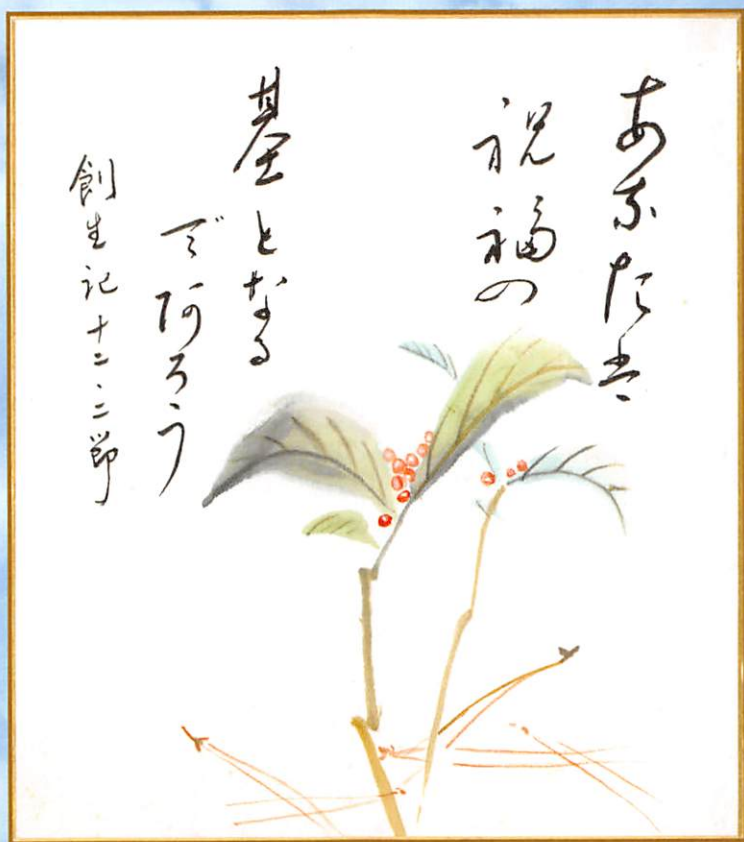 あなたは
祝福の
基となる
であろう
創生記十二.二節